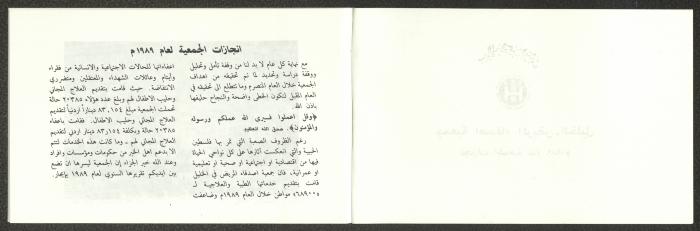 انجازات الجمعية لعام ١٩٨٩م
مع نهاية كل عام لا بد لنا من وقفة تأمل وتحليل
ووقفة دراسة وتحديد لما تم تحقيقه من اهداف
الجمعية خلال العام المنصرم وما نتطلع الى تحقيقه في
العام المقبل لتكون الخطى واضحة والنجاح حليفها
باذن الله.
«وقل اعملوا فسيرى الله عملكم ورسوله
والمؤمنون». صدق الله العظيم
رغم الظروف الصعبة التي تمر بها فلسطين
الحبيبة والتي انعكست آثارها على كل نواحي الحياة
فيها من اقتصادية او اجتماعية او صحية او تعليمية
او عمرانية، فان جمعية اصدقاء المريض في الخليل
قامت بتقديم خدماتها الطبية والعلاجية لـ
٤٦٨٩٠٠٥ مواطن خلال العام ١٩٨٩م وضاعفت
اعفاءاتها للحالات الاجتماعية والانسانية من فقراء
وأيتام وعائلات الشهداء والمعتقلين ومتضرري
الانتفاضة. حيث قامت بتقديم العلاج المجاني
وحليب الاطفال لهم وبلغ عدد هؤلاء ٢٠٣٨٥ حالة
تحملت الجمعية مبلغ ٨٣,١٥٤ ديناراً أردنياً لتقديم
العلاج المجاني وحليب الاطفال. فقامت باعفاء
٢٠٣٨٥ حالة وبكلفة ٨٣,١٥٤ دينار اردني لتقديم
العلاج المجاني لهم، وما كانت هذه الخدمات لتتم
الا بدعم اهل الخير من حكومات ومؤسسات وافراد
وعند الله خير الجزاء إن الجمعية ليسرها ان تضع
بين ايديكم تقريرها السنوي لعام ١٩٨٩ بإيجاز.